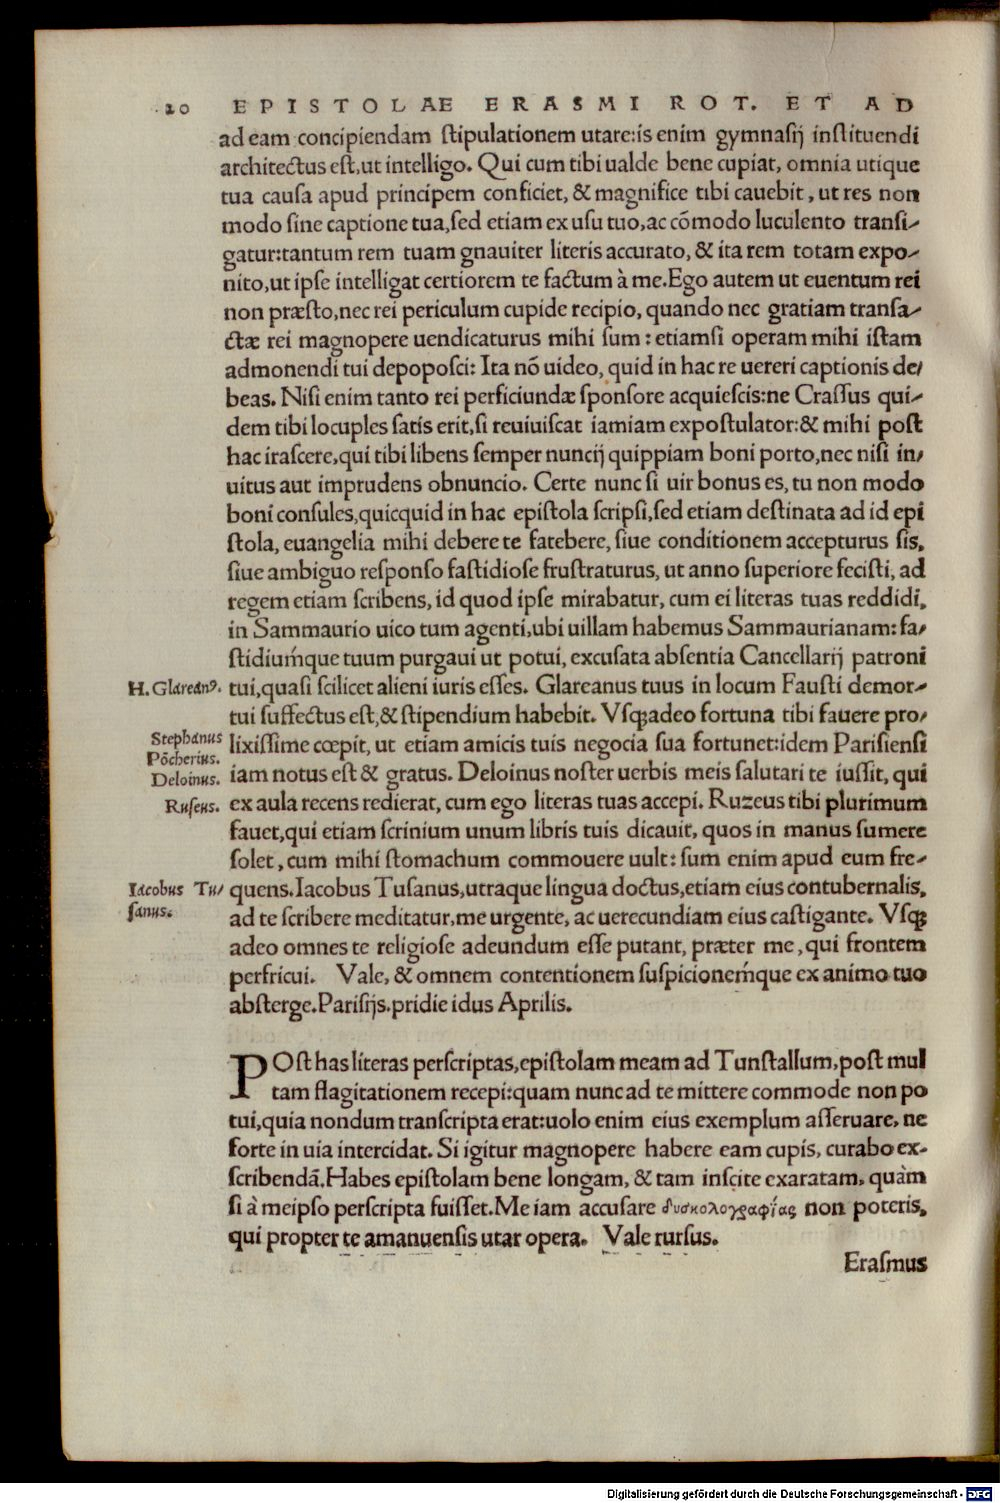 20 EPISTOLAE ERASMI ROT. ET AD
ad eam concipiendam ſtipulationem utare:is enim gymnaſij inſtituendi
architectus eſt,ut intelligo. Qui cum tibi ualde bene cupiat, omnia utique
tua cauſa apud principem conficiet, & magnifice tibi cauebit, ut res non
modo ſine captione tua,ſed etiam ex uſu tuo,ac cõmodo luculento tranſi-
gatur:tantum rem tuam gnauiter literis accurato, & ita rem totam expo-
nito,ut ipſe intelligat certiorem te factum à me.Ego autem ut euentum rei
non præſto,nec rei periculum cupide recipio, quando nec gratiam tranſa-
ctæ rei magnopere uendicaturus mihi ſum: etiamſi operam mihi iſtam
admonendi tui depopoſci: Ita nõ uideo, quid in hac re uereri captionis de/
beas. Niſi enim tanto rei perficiundæ ſponſore acquieſcis:ne Craſſus qui-
dem tibi locuples ſatis erit,ſi reuiuiſcat iamiam expoſtulator:& mihi poſt
hac iraſcere,qui tibi libens ſemper nuncij quippiam boni porto,nec niſi in/
uitus aut imprudens obnuncio. Certe nunc ſi uir bonus es, tu non modo
boni conſules,quicquid in hac epiſtola ſcripſi,ſed etiam deſtinata ad id epi
ſtola, euangelia mihi debere te fatebere, ſiue conditionem accepturus ſis,
ſiue ambiguo reſponſo faſtidioſe fruſtraturus, ut anno ſuperiore feciſti, ad
regem etiam ſcribens, id quod ipſe mirabatur, cum ei literas tuas reddidi,
in Sammaurio uico tum agenti,ubi uillam habemus Sammaurianam: fa/
ſtidiumq́ue tuum purgaui ut potui, excuſata abſentia Cancellarij patroni
H. Glareanꝰ. tui,quaſi ſcilicet alieni iuris eſſes. Glareanus tuus in locum Fauſti demor-
tui ſuffectus eſt,& ſtipendium habebit. Vſqꝫadeo fortuna tibi fauere pro/
Stephanus lixiſſime cœpit, ut etiam amicis tuis negocia ſua fortunet:idem Pariſienſi
Põcherius.
Deloinus. iam notus eſt & gratus. Deloinus noſter uerbis meis ſalutari te iuſſit, qui
Ruſeus. ex aula recens redierat, cum ego literas tuas accepi. Ruzeus tibi plurimum
fauet,qui etiam ſcrinium unum libris tuis dicauit, quos in manus ſumere
ſolet, cum mihi ſtomachum commouere uult: ſum enim apud eum fre-
Iacobus Tu/ quens.Iacobus Tuſanus,utraque lingua doctus,etiam eius contubernalis,
ſanus. ad te ſcribere meditatur,me urgente, ac uerecundiam eius caſtigante. Vſqꝫ
adeo omnes te religioſe adeundum eſſe putant, præter me, qui frontem
perfricui. Vale, & omnem contentionem ſuſpicionemq́ue ex animo tuo
abſterge.Pariſijs.pridie idus Aprilis.
POſt has literas perſcriptas,epiſtolam meam ad Tunſtallum,poſt mul
tam flagitationem recepi:quam nunc ad te mittere commode non po
tui,quia nondum tranſcripta erat:uolo enim eius exemplum aſſeruare, ne
forte in uia intercidat. Si igitur magnopere habere eam cupis, curabo ex-
ſcribendã.Habes epiſtolam bene longam, & tam inſcite exaratam, quàm
ſi à meipſo perſcripta fuiſſet.Me iam accuſare δυσκολογραφίας non poteris,
qui propter te amanuenſis utar opera. Vale rurſus.
Eraſmus
Digitalisierung gefördert durch die Deutsche Forschungsgemeinschaft - DFG